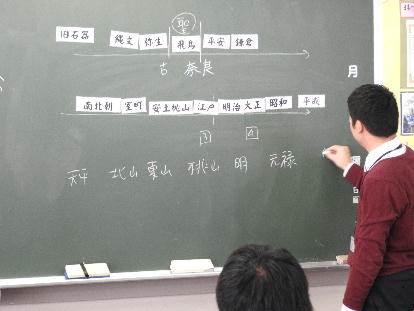 聖
旧石器 縄文 弥生 飛鳥 平安 鎌倉
古 奈良
南北朝 室町 安土桃山 江戸 明治 大正 昭和 平成
天平 北山 東山 桃山 明 元禄
月